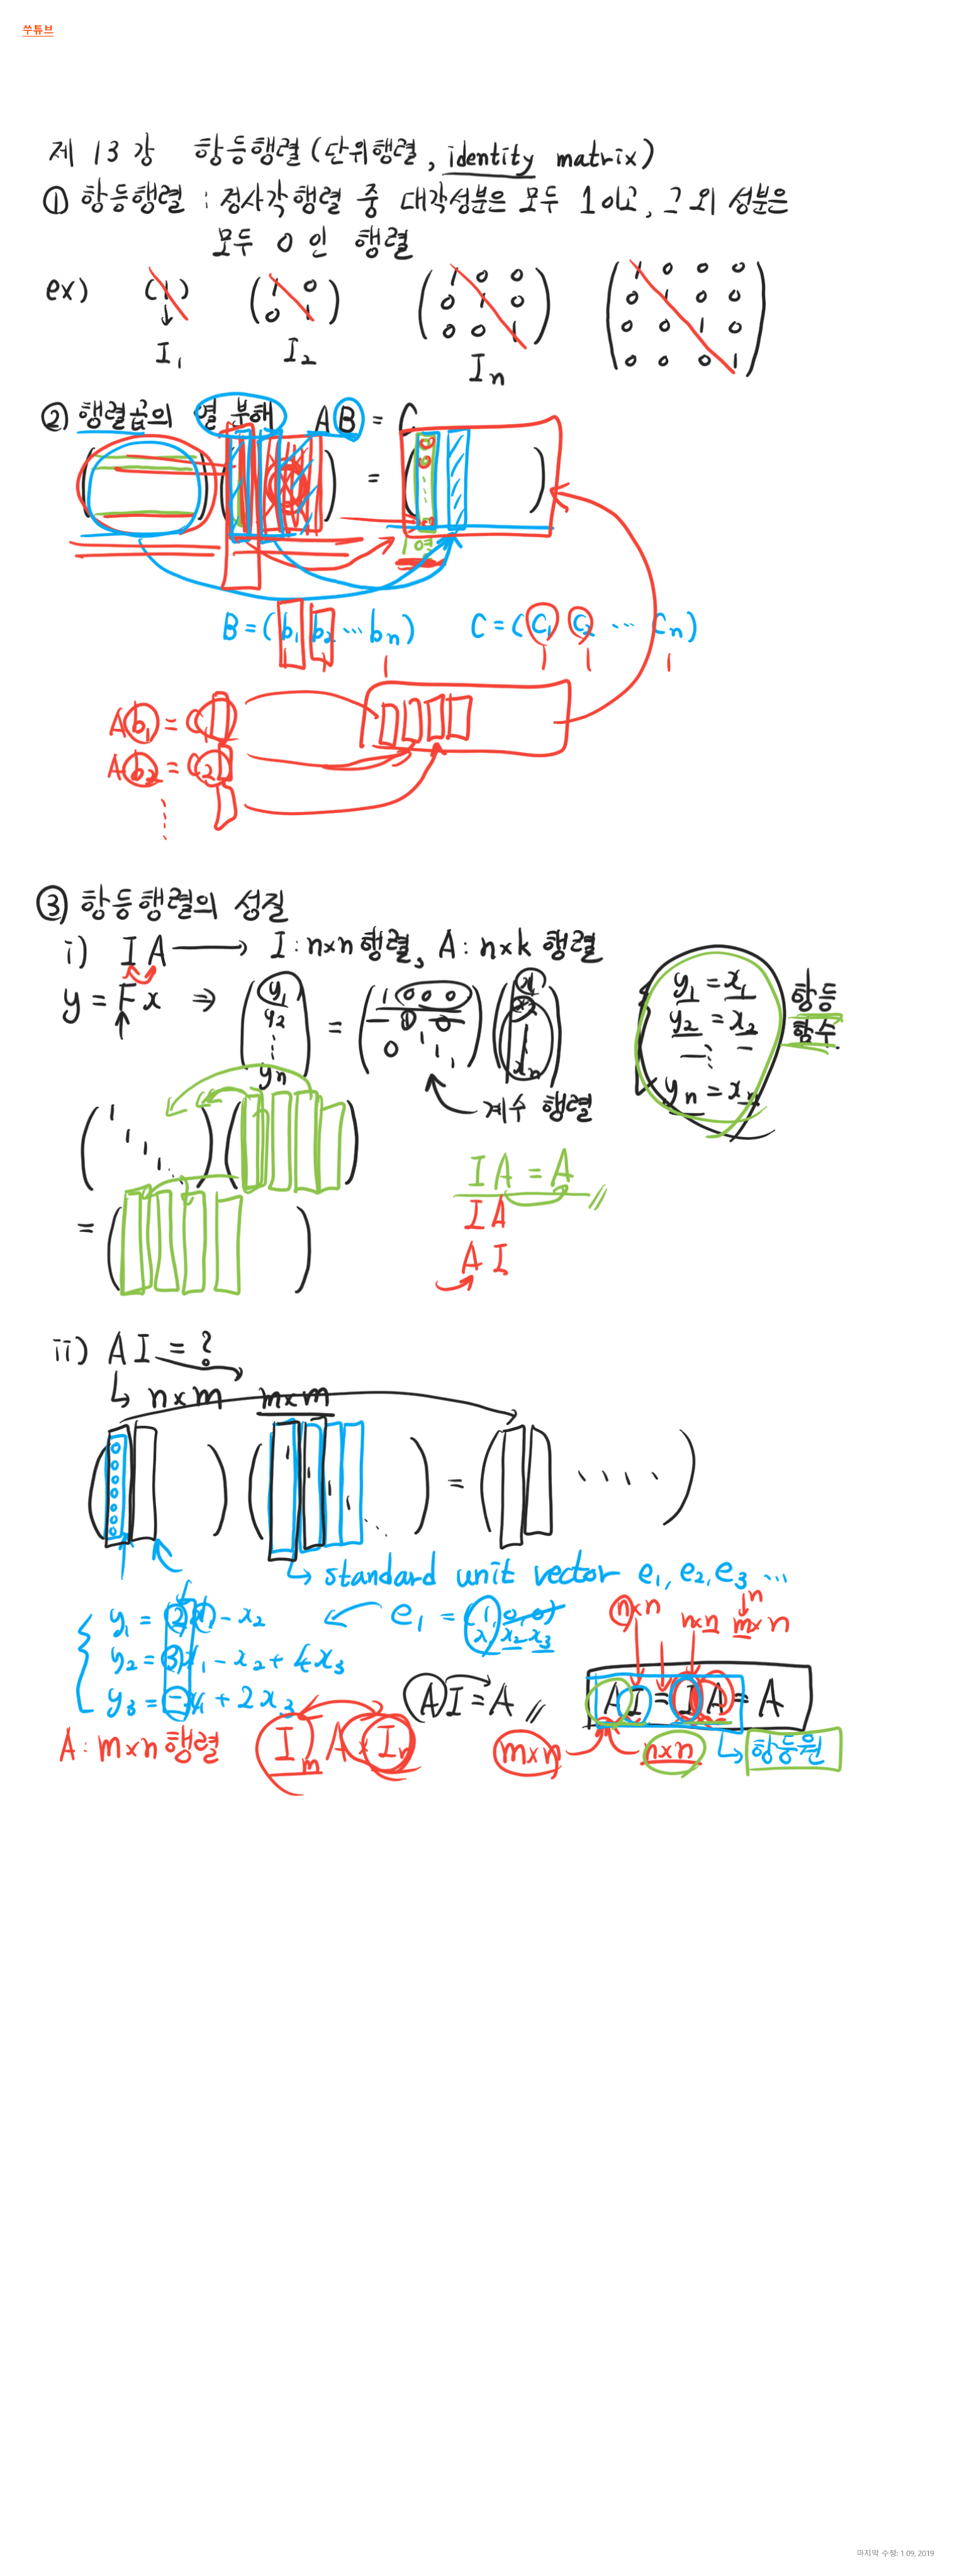 쑤튜브
제 13 강 항등행렬 (단위행렬, identity matrix)
① 항등행렬 : 정사각행렬 중 대각성분은 모두 1이고, 그 외 성분은
모두 0 인 행렬
ex) (1) (1 0 (1 0 0 (1 0 0 0
0 1) 0 1 0 0 1 0 0
0 0 1) 0 0 1 0
0 0 0 1)
I₁ I₂ Iₙ
② 행렬곱의 열 분해 AB = C
( ) ( ) = ( )
1열
B = (b₁ b₂ ⋯ bₙ) C = (c₁ c₂ ⋯ cₙ)
Ab₁ = c₁
Ab₂ = c₂
⋮
③ 항등행렬의 성질
i) IA → I : n×n 행렬, A : n×k 행렬
y = Fx ⇒ (y₁ y₂ ⋮ yₙ) = (1 0 0 0 ⋱ 0) (x₁ x₂ ⋮ xₙ)
y₁ = x₁
y₂ = x₂
⋮
yₙ = xₙ
항등
함수
계수 행렬
IA = A
IA
AI
ii) AI = ?
n×m m×m
( ) ( ) = ( ⋯⋯ )
standard unit vector e₁, e₂, e₃ ⋯
y₁ = 2x₁ - x₂
y₂ = 3x₁ - x₂ + 4x₃
y₃ = -x₁ + 2x₃
e₁ = (1, 0, 0)
x₁ x₂ x₃
n×n n×n m×n
n
AI = A
AI = IA = A
A : m×n 행렬 Iₘ A × Iₙ
m×n n×n 항등원
마지막 수정: 1 09, 2019